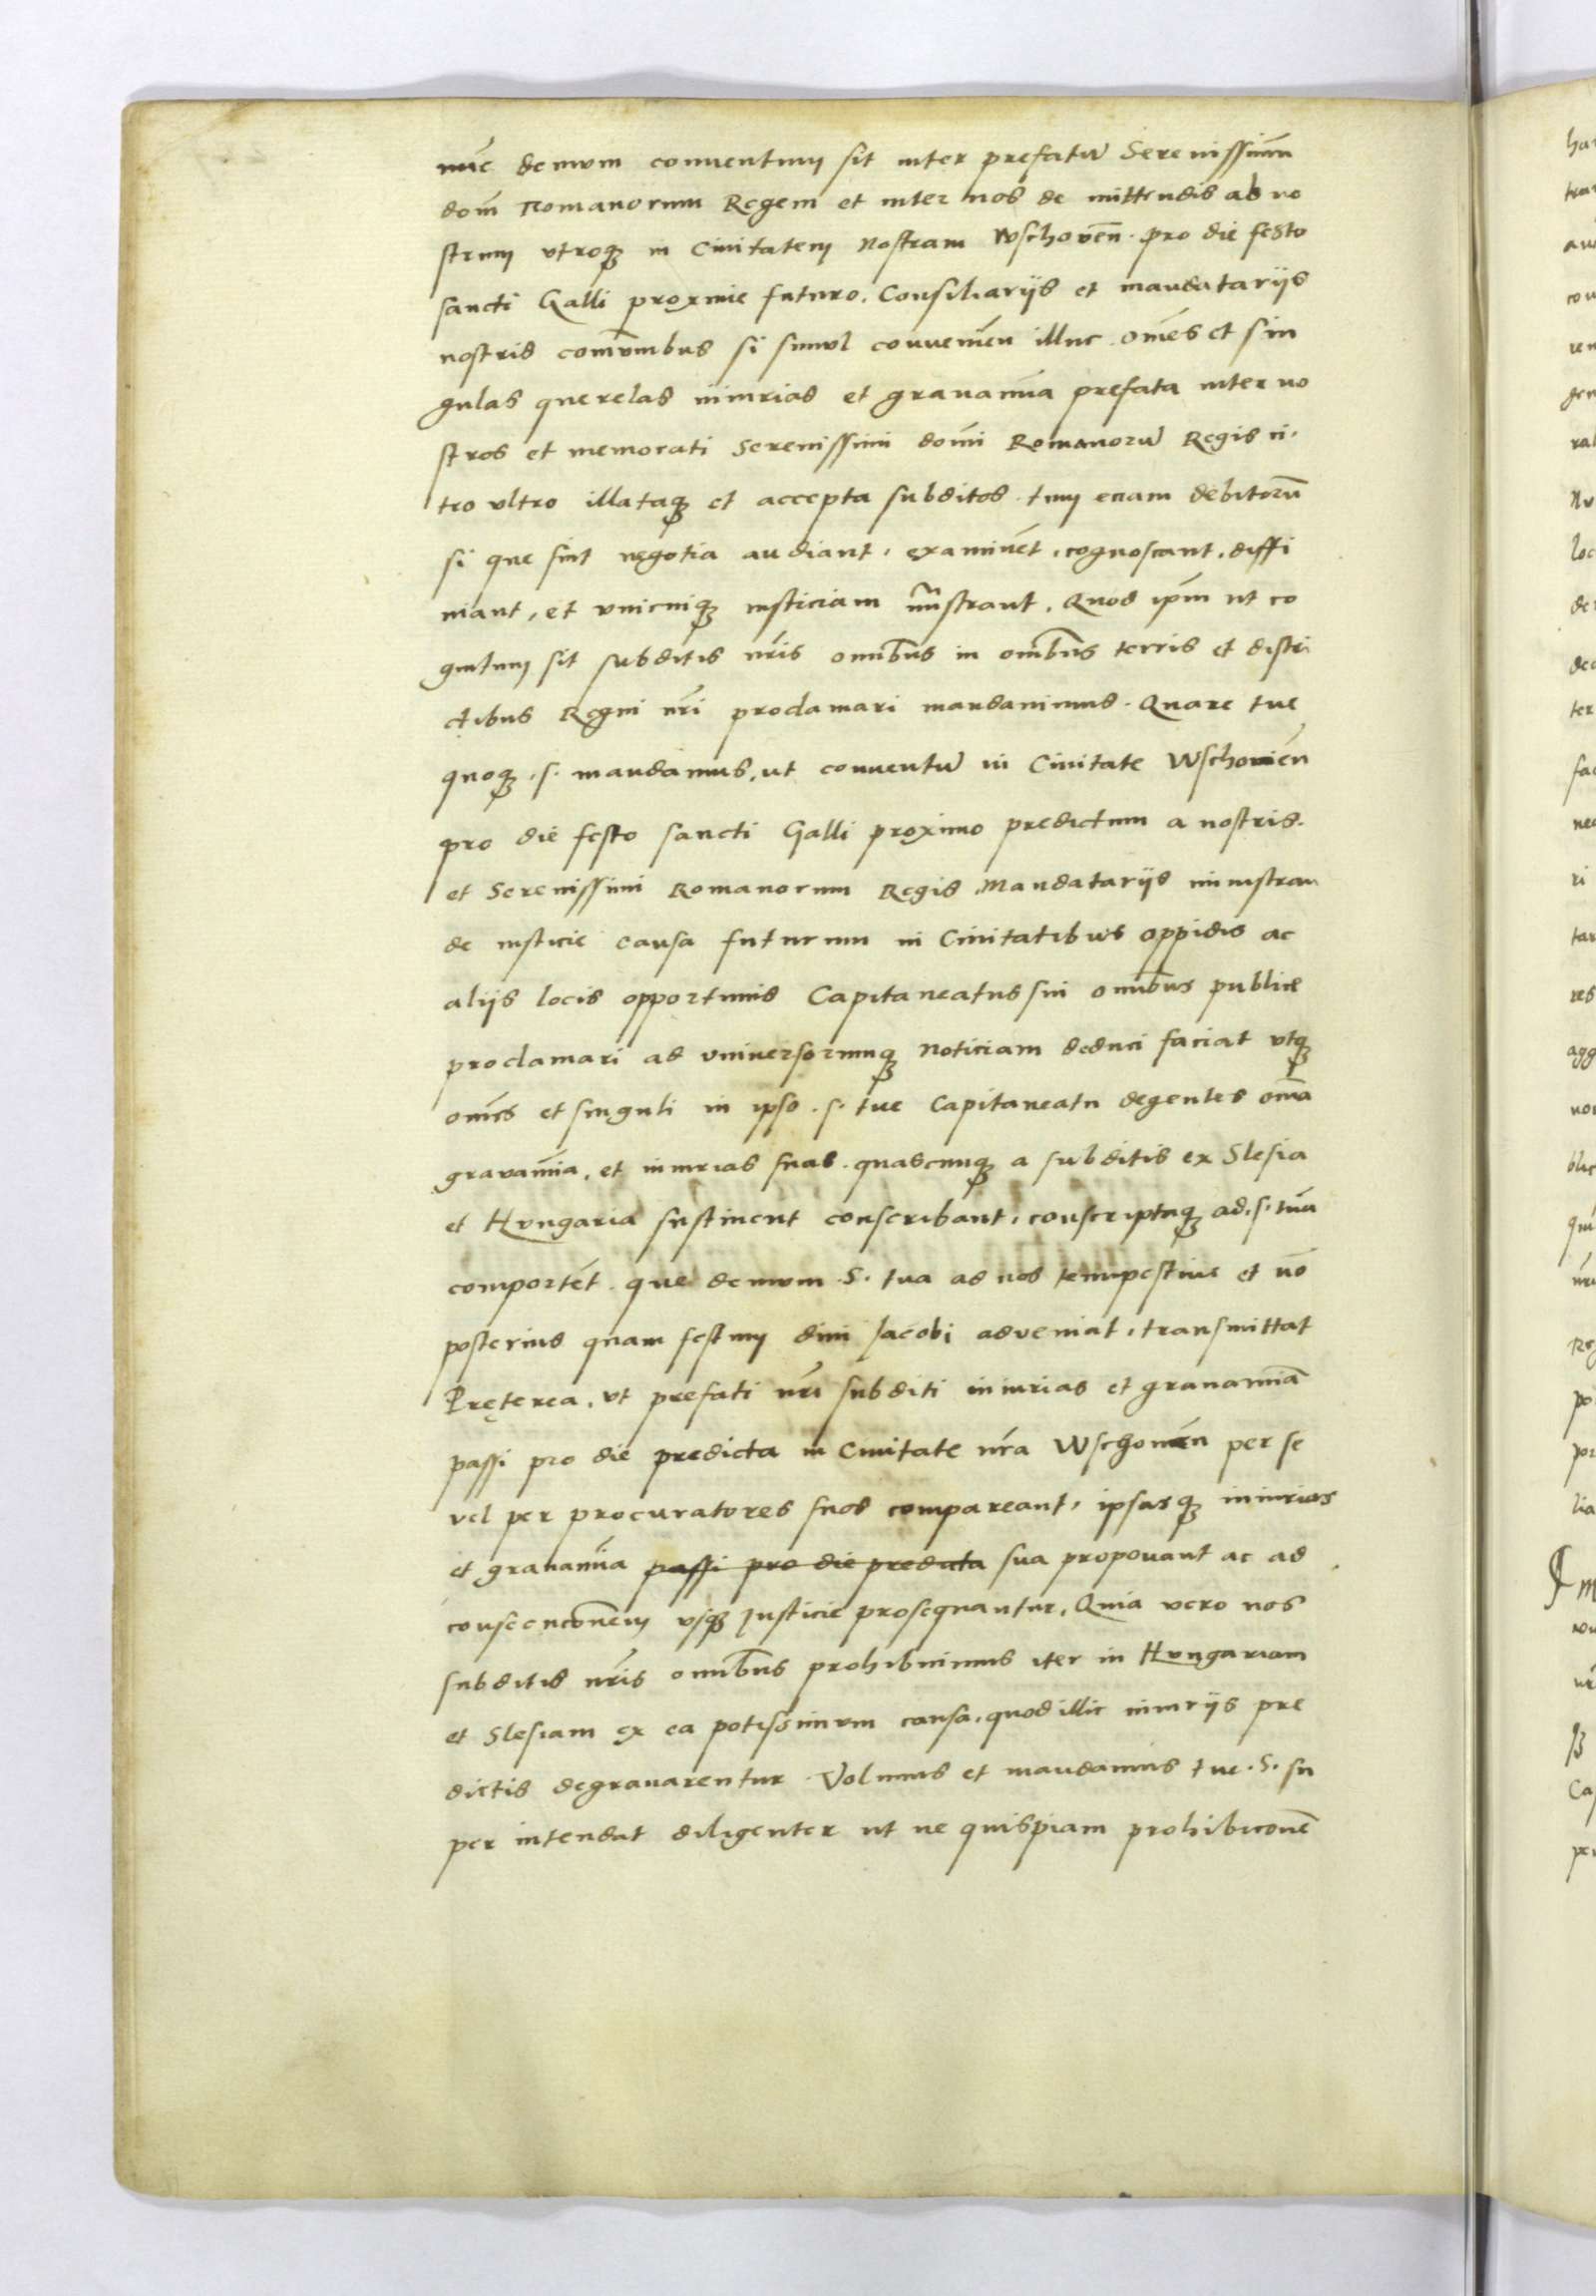 nu̅c demum conuentum sit inter prefatu̅ Serenissimu̅
dom̅ Romanorum Regem et inter nos de mittendis ab no
strum vtroq; in Ciuitatem nostram Wschouen̅. pro die festo
sancti Galli proxime futuro. Consiliarijs et mandatarijs
nostris com̅unibus si simul conuenien̅ illuc. om̅es et sin
gulas querelas iniurias et grauam̅ia prefata inter no
stros et memorati Serenissimi dom̅i Romanoru̅ Regis ci,
tro vltro illataq; et accepta subditos. tum etiam debitoru̅
si que sint negotia audiant, examine̅t, cognoscant, diffi
niant, et vnicuiq; iusticiam mi̅strant. Quod ip̅m ut co
gnitum sit subditis nr̅is omnib̅us in omnib̅us terris et distri
ctibus Regni nr̅i proclamari mandauimus. Quare tue
quoq; .s. mandamus, ut conuentu̅ in Ciuitate Wschouien̅
pro die festo sancti Galli proximo predictum a nostris.
et Serenissimi Romanorum Regis Mandatarijs ministran
de iusticie causa futurum in Ciuitatibus oppidis ac
alijs locis opportunis Capitaneatus sui omnib̅us publice
proclamari ad vniuersorumq; noticiam deduci faciat vtq;
om̅es et singuli in ipso .s. tue Capitaneatu degentes om̅ia
grauam̅ia, et iniurias suas. quascunq; a subditis ex Slesia
et Hungaria sustinent conscribant, conscriptaq; ad .s. tua̅
comporte̅t. que demum .S. tua ad nos tempestiue et no̅
posterius quam festum diui Jacobi adveniat, transmittat
Pręterea, vt prefati nr̅i subditi iniurias et grauam̅ia
passi pro die predicta in Ciuitate nr̅a Wschouien̅ per se
vel per procuratores suos compareant, ipsasq; iniurias
et grauam̅ia passi pro die predicta sua proponant ac ad
consecuc̅onem vsq; Justicie prosequantur. Quia vero nos
subditis nr̅is omnib̅us prohibuimus iter in Hungariam
et Slesiam ex ea potissimum causa, quod illic iniurijs pre
dictis degrauarentur. Volumus et mandamus tue .S. su
per intendat diligenter ut ne quispiam prohibic̅one̅